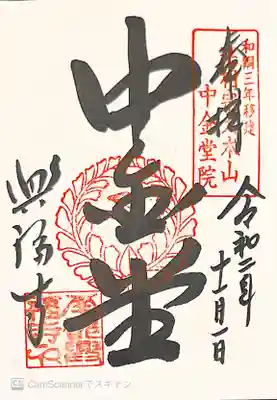 奉拝
和銅三年移建
中金堂院
令和二年
十一月一日
中金堂
興福寺
CamScannerでスキャン